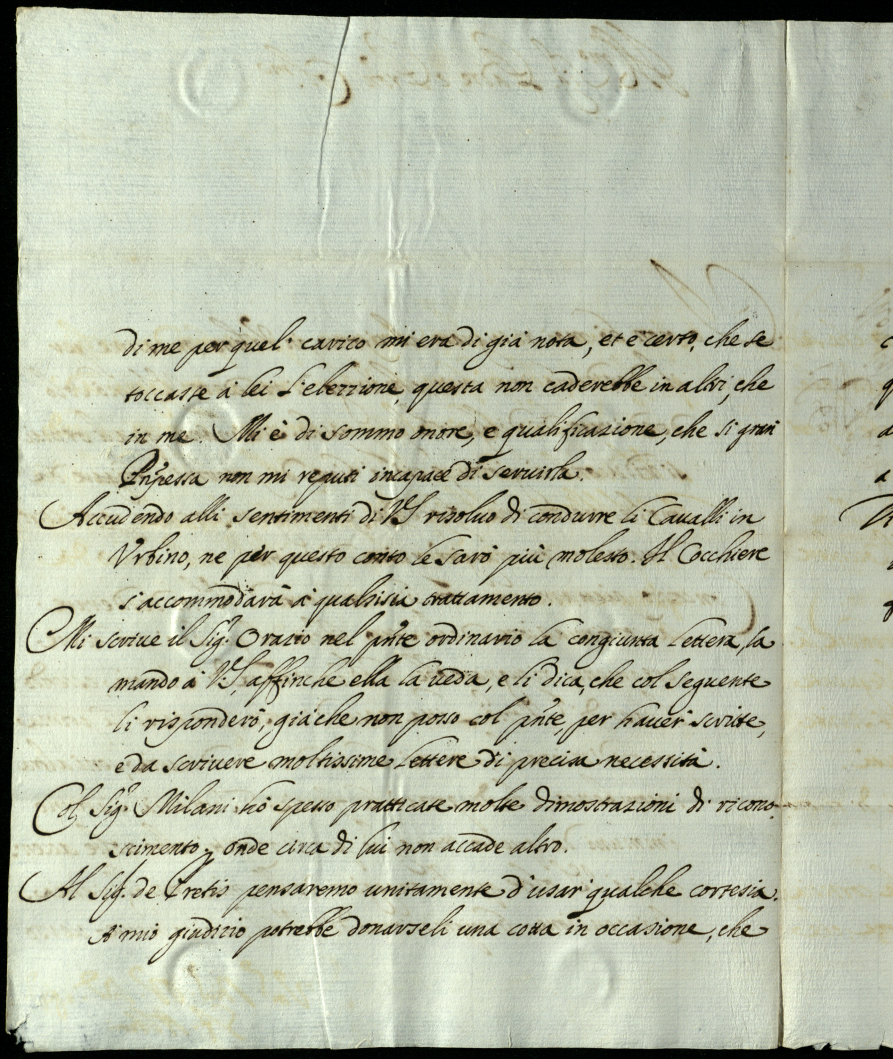 di me per quel carico mi era di già nota, et è certo, che se
toccasse à lei l'elezzione, questa non caderebbe in altri, che
in me. Mi è di sommo onore, e qualificazione, che si gran
Pnpessa non mi reputi incapace di servirla.
Accudendo alli sentimenti di VS risoluo di condurre li Cavalli in
Vrbino, ne per questo conto le sarò più molesto. Il Cocchiere
s'accommodarà à qualsisia trattamento.
Mi scriue il Sig.r Orazio nel pnte ordinario la congiunta lettera, la
mando à VS, affinche ella la ueda, e li dica, che col seguente
li risponderò, già che non posso col pnte, per hauer scritte,
e da scriuere moltissime lettere di precisa necessità.
Col Sig.r Milani hò spesso pratticate molte dimostrazioni di ricono-
scimento, onde circa di lui non accade altro.
Al Sig.r de Pretis pensaremo unitamente d'usar qualche cortesia.
A mio giudizio potrebbe donarseli una cotta in occasione, che